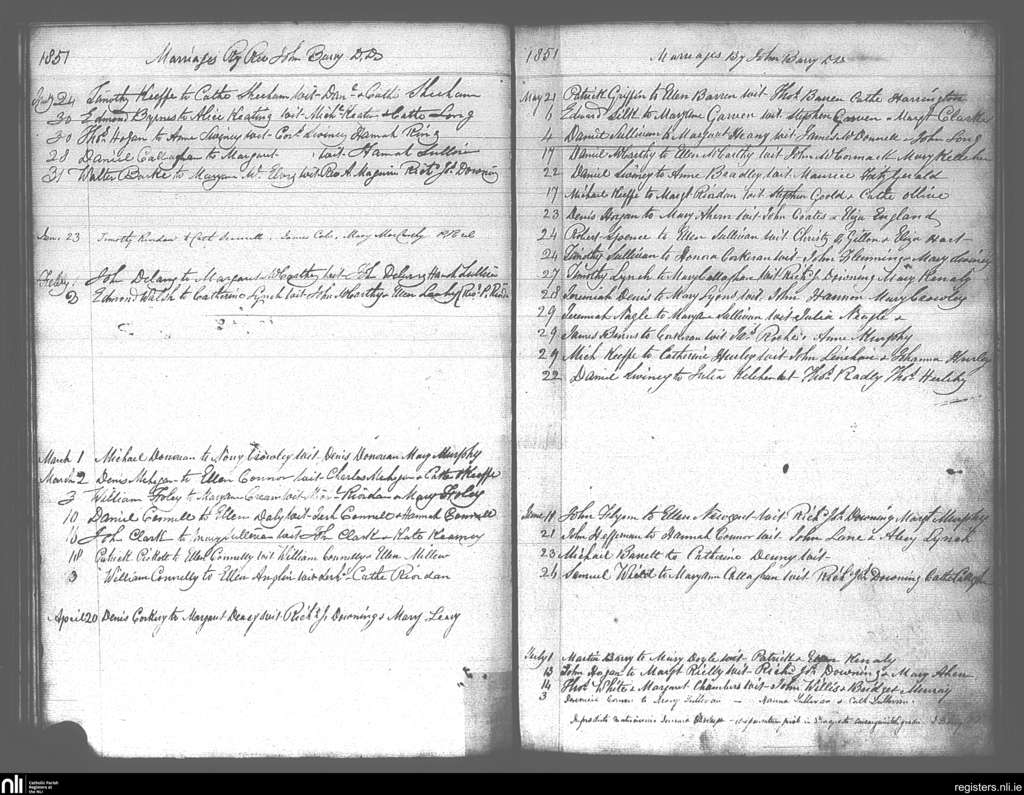 1851 Marriages By Rev John Barry D.D
24 Timothy Keeffe to Cathe Sheehan wit Danl & Cathe Sheehan
30 Edmond Byrnes to Alice Keating wit Michl Keat & Cathe Long
30 Thos Hogan to Anne Swiney wit Hannah Ring
28 Daniel Callaghan to Margaret wit Hannah Sullivan
31 Walter Burke to Maryann wit Rev A. Maguire Richd Jas Downing
Jan 23 Timothy Riordan & Mary McCarthy
Feby 1 John Delany to Margaret McCarthy wit John Delany Hanah Sullivan
2 Edmond Walsh to Catherine Lynch wit John McCarthy & Ellen
March 1 Michael Donovan to Nony Crowley wit Denis Donovan Mary Murphy
March 2 Denis Mehegan to Ellen Connor wit Charles Mehegan & Cathe Keeffe
3 William Foley to Maryann Crean wit Riordan & Mary Foley
10 Daniel Connell to Ellen Daly wit Jerh Connell & Hannah Connell
16 John Clark to Mary Sullivan wit John Clark & Kate Kearney
18 Patrick to Ellen Connelly wit William Connelly & Ellen
3 William Connelly to Ellen Anglin wit Cathe Riordan
April 20 Denis Corkery to Margaret Deasy wit Richd Js Downing & Mary Leary
1851 Marriages By John Barry DD
May 21 Patrick Griffin to Ellen Barren wit Thos Barren Cathe Harrington
6 Edward to Maryanne Garven wit Stephen Garven & Margt
4 Daniel Sullivan to Margaret Heany wit James McDonnell & John Long
17 Daniel McCarthy to Ellen McCarthy wit John McCormack Mary
22 Daniel Swiney to Anne Bradley wit Maurice Fitzgerald
17 Michael Keeffe to Margt Riordan wit Stephen Goold & Cathe
23 Denis Hogan to Mary Ahern wit John Coates & Eliza England
24 Robert Spence to Ellen Sullivan wit Christy & Eliza Hart
24 Timothy Sullivan to Honora Corkeran wit John Flemming & Mary Swiney
27 Timothy Lynch to Mary Callaghan wit Richd Js Downing Mary Kenaly
28 Jeremiah Denis to Mary Lyons wit John Hannon Mary Crowley
29 Jeremiah Nagle to Maryann Sullivan wit Julia Neagle &
29 James to Corkeran wit Jas Roche & Anne Murphy
29 Mich Keeffe to Catherine Hurley wit John Linehane & Johanna Hurley
22 Daniel Swiney to Julia Kelehen wit Thos Radley Thos Herlihy
June 18 John to Ellen wit Richd Js Downing Margt Murphy
21 John Heffernan to Hannah Connor wit John Lane & Alicy Lynch
23 Michael Barrett to Catherine Denny wit
24 Samuel to Maryann Callaghan wit Richd Js Downing Cathe
July 1 Martin Barry to Mary Doyle wit Patrick & Ellen Kenaly
13 John Hogan to Margt Rielly wit Richd Js Downing & Mary Ahern
14 Thos White & Margaret Chambers wit John Willis & Bridget Murray
3 to Mary Sullivan — Sullivan & Cath Sullivan
nli Catholic Parish Registers at the NLI
registers.nli.ie